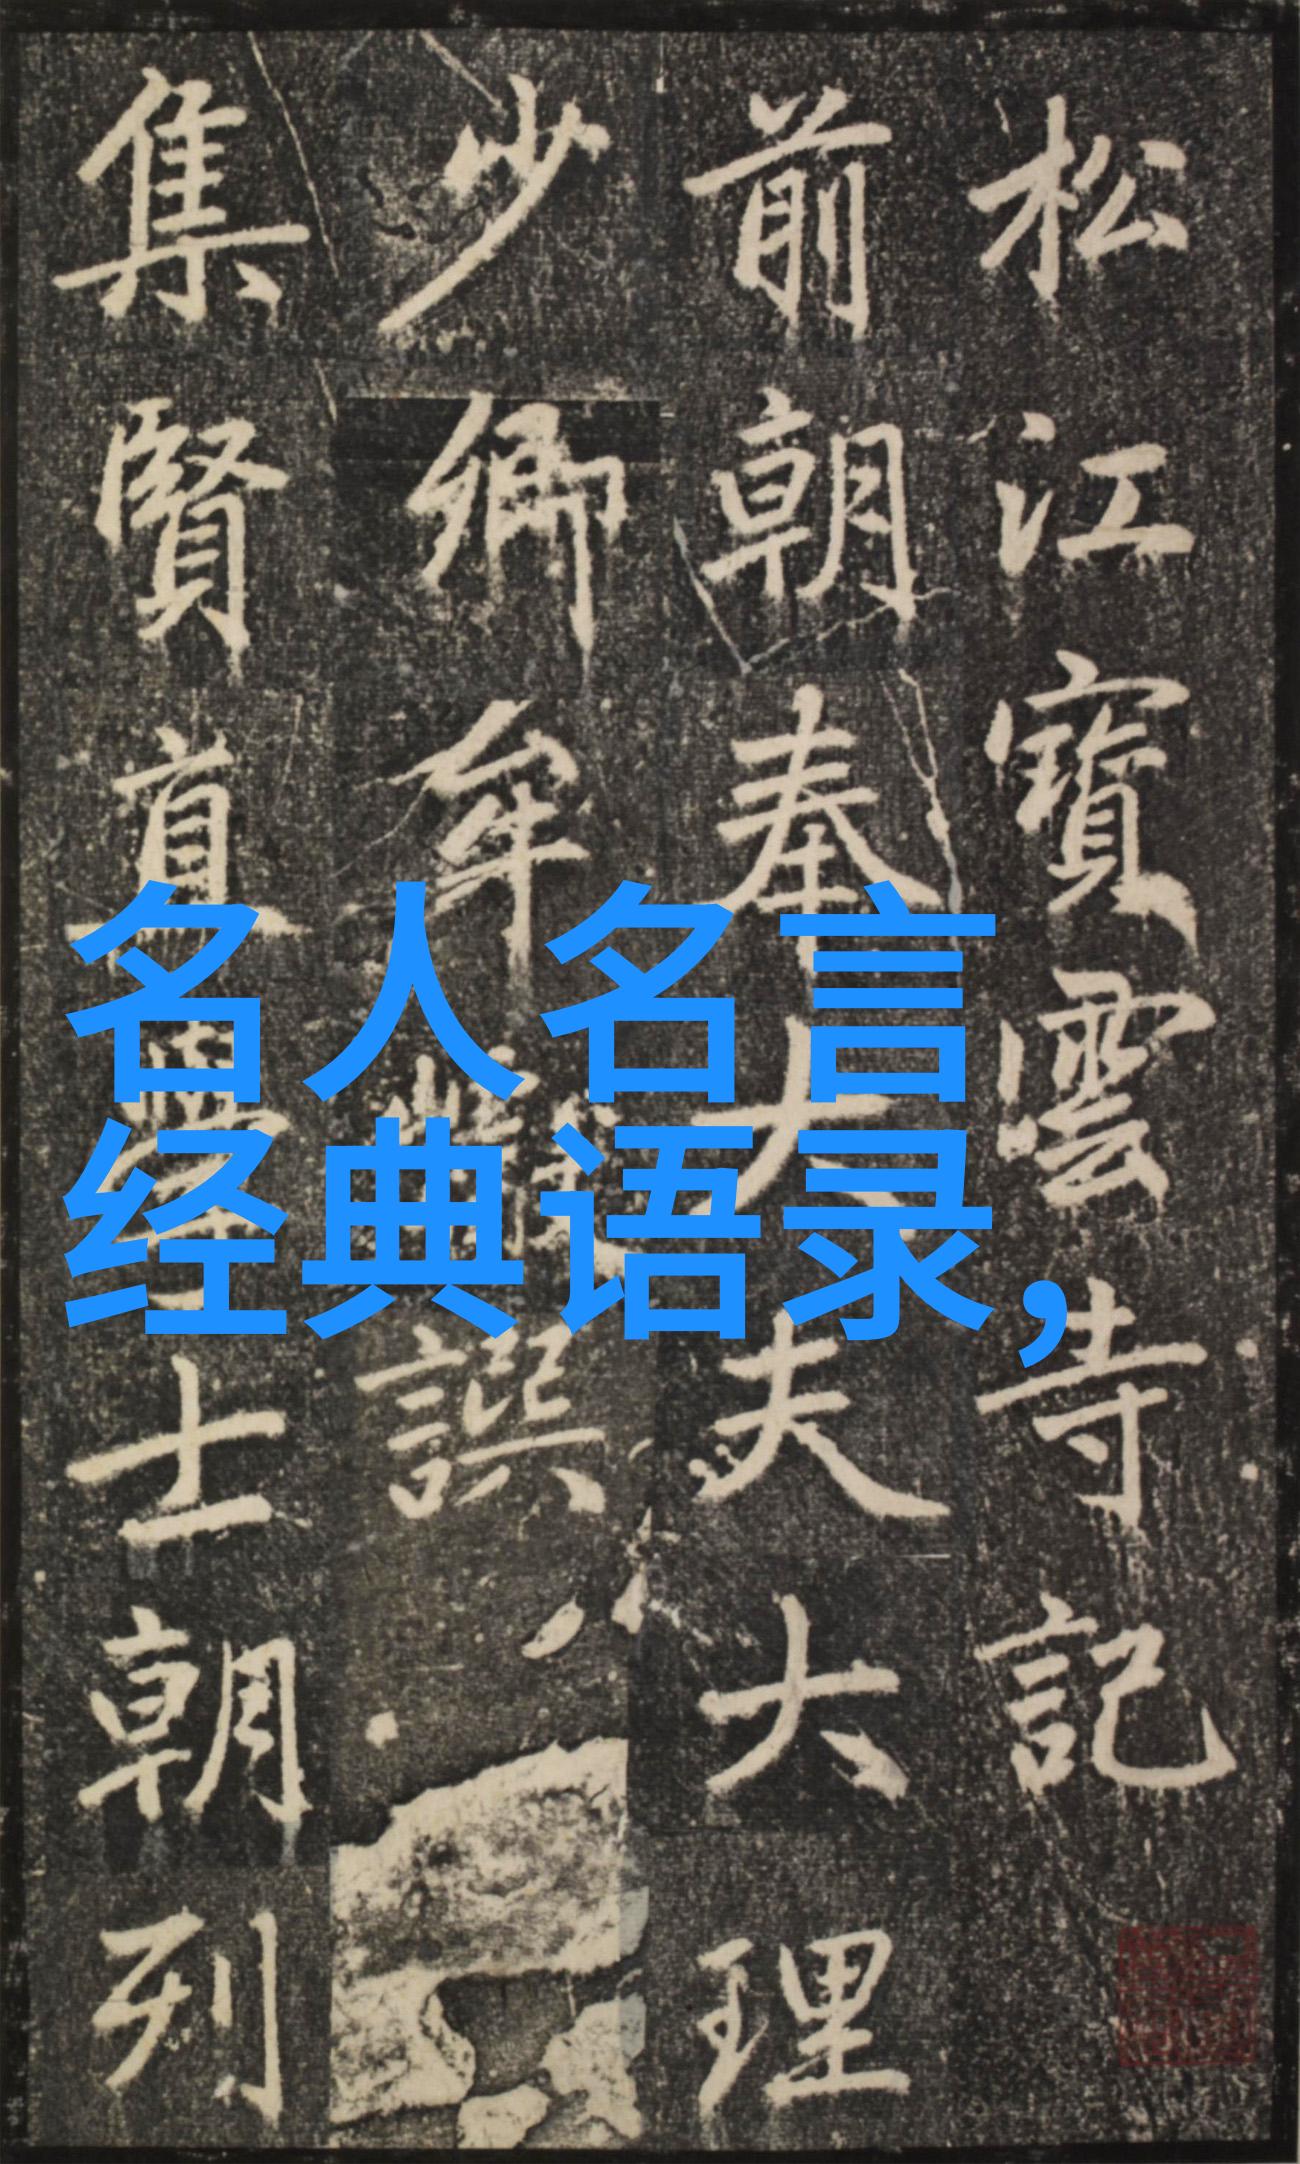 松江寳雲寺記
前朝奉大夫大理
少卿牟巘譔
集賢直學士朝列
名人名言
经典语录，